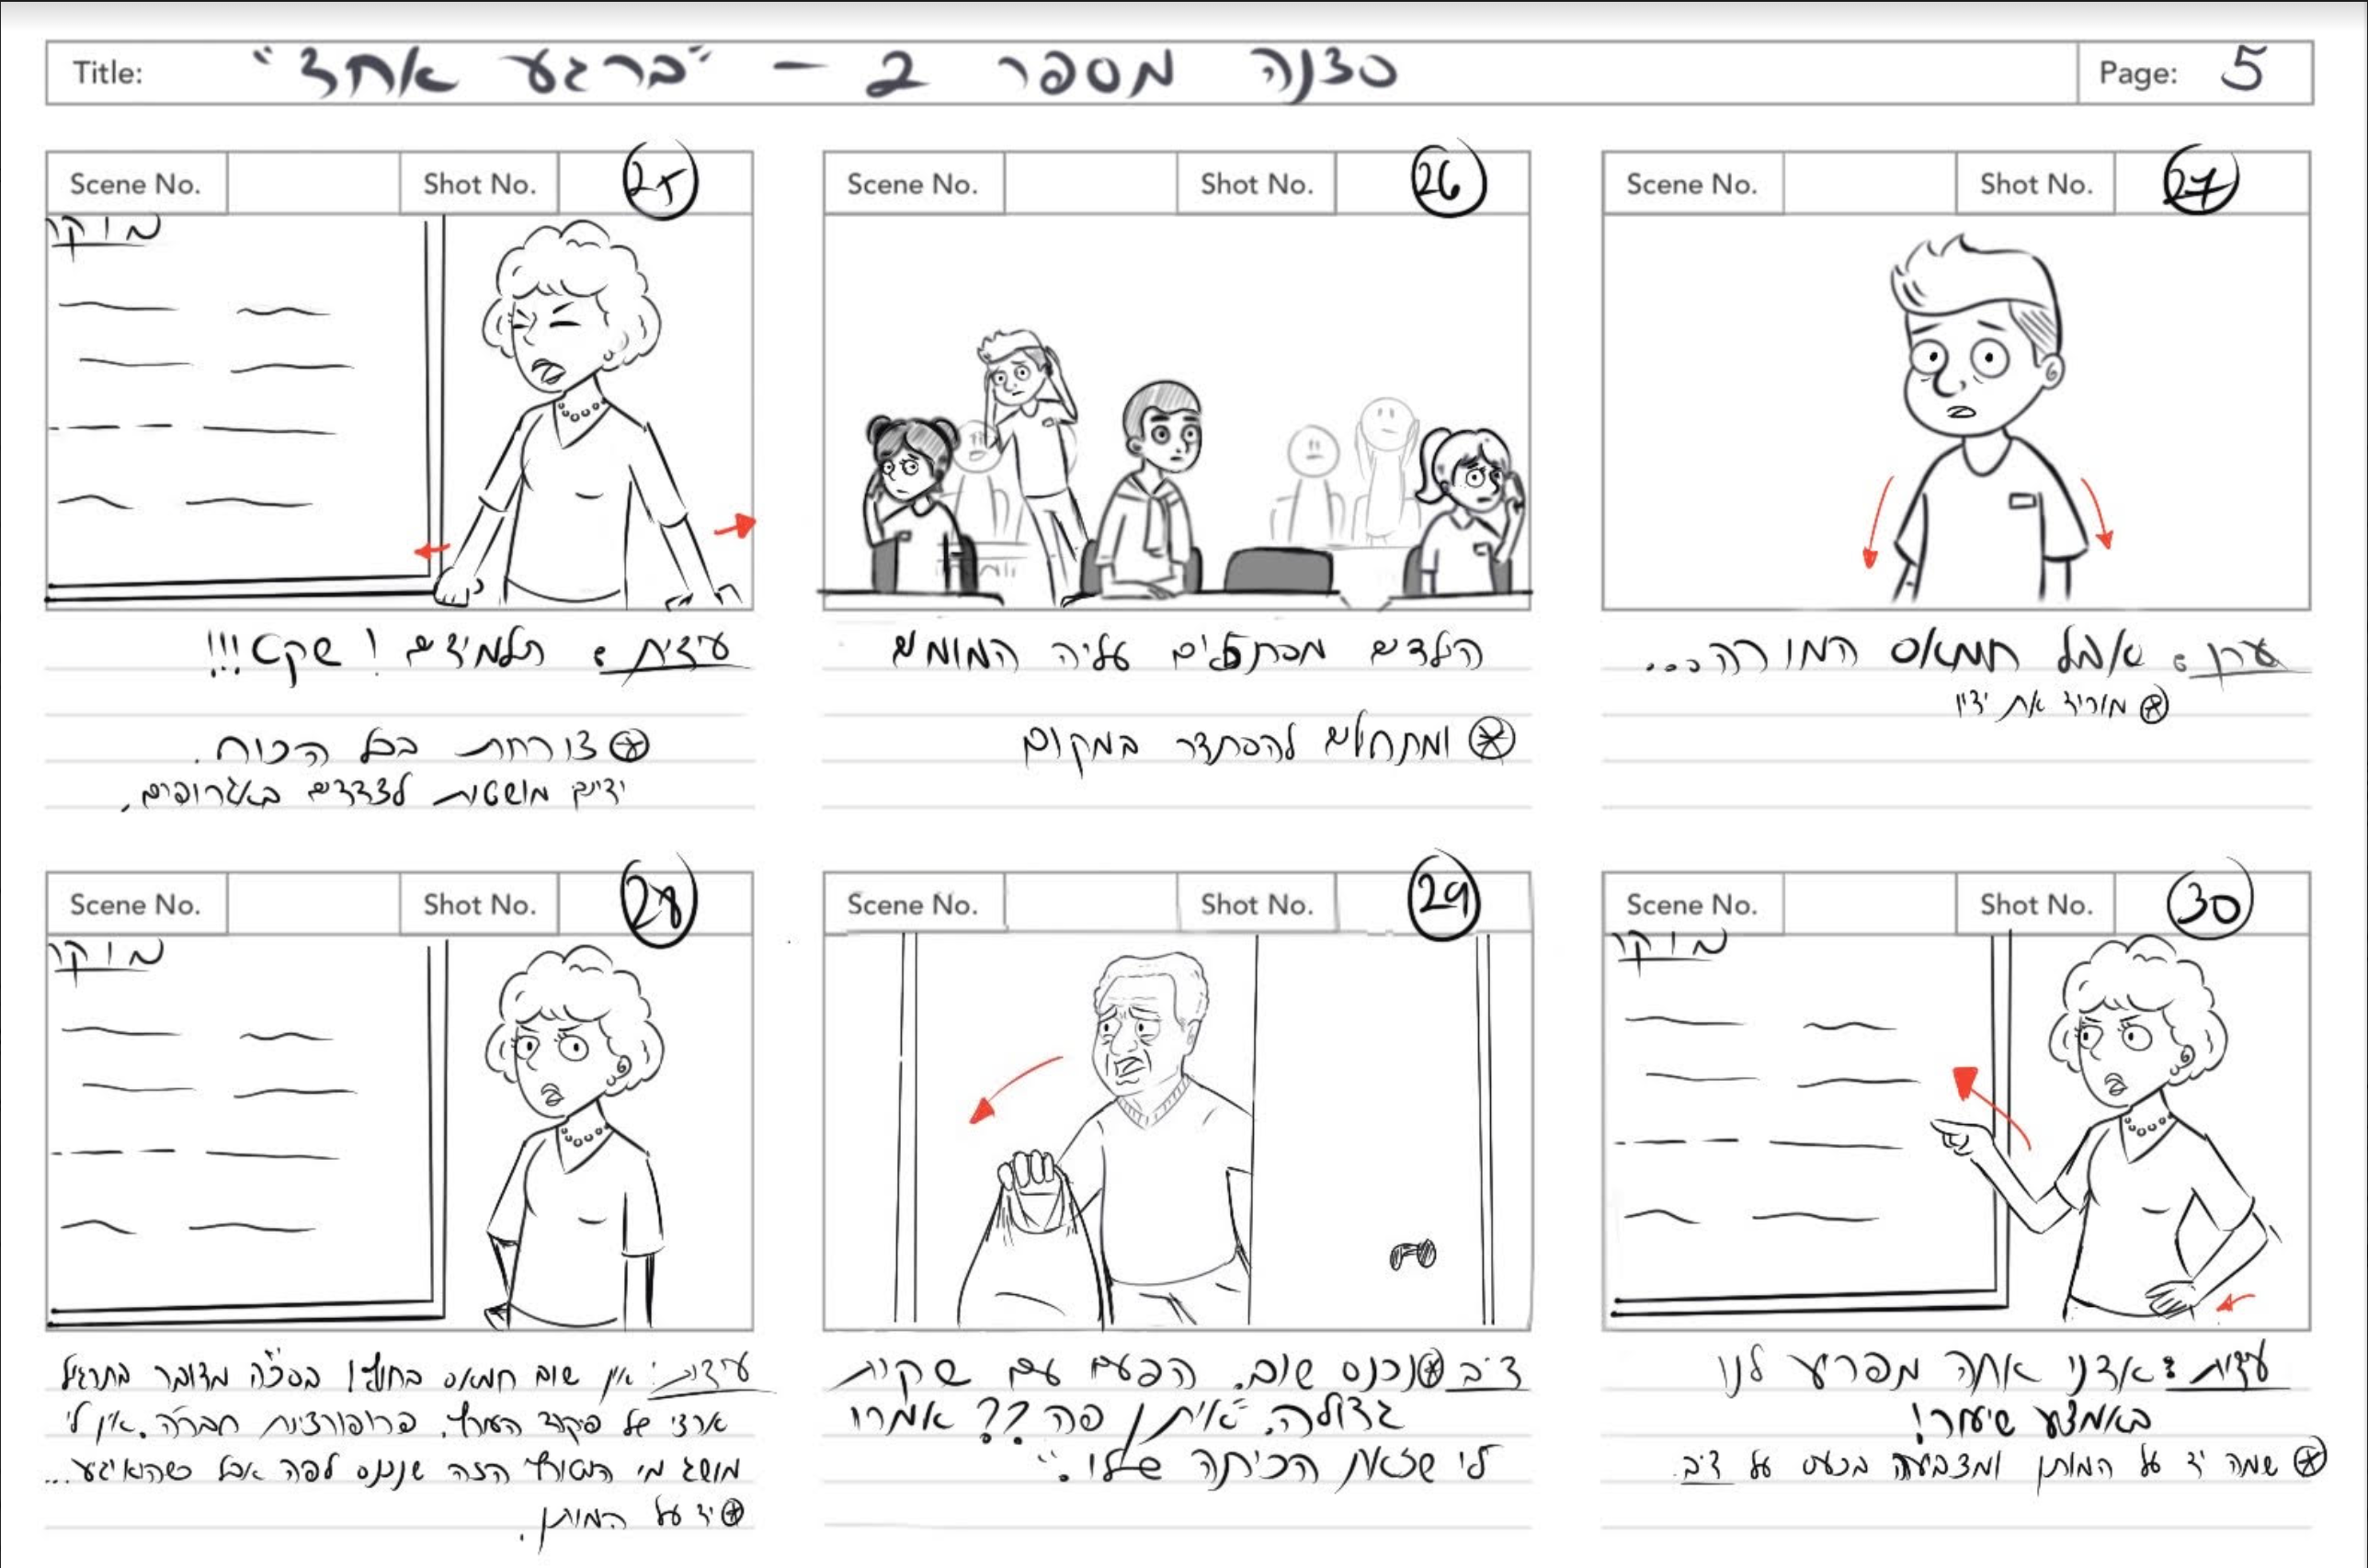 Title: סצנה מספר 2 – "ברגע אחד"
Page: 5
Scene No. Shot No. 25
מוקר
עידית: תלמידים! שקט!!!
⊛ צורחת בכל הכוח.
ידיים מושטות לצדדים באגרופים.
Scene No. Shot No. 26
הילדים מסתכלים עליה המומים
⊛ ומתחילים להסתדר במקום
Scene No. Shot No. 27
ערן: אבל חמאס המורה...
⊛ מוריד את ידיו
Scene No. Shot No. 28
מוקר
עידית: אין שום חמאס בחוץ! בסה"כ מדובר בתרגיל
ארצי של פיקוד העורף. פרופורציות חבר'ה. אין לי
מושג מי הטורף הזה שנכנס לפה אבל כשהוא יגיע...
⊛ יד על המותן.
Scene No. Shot No. 29
ד"ב ⊛ נכנס שוב. הפעם עם שקית
גדולה. "איתן פה?? אמרו
לי שזאת הכיתה שלו."
Scene No. Shot No. 30
מוקר
עידית: אדוני אתה מפריע לנו
באמצע שיעור!
⊛ שמה יד על המותן ומצביעה בכעס על ד"ב.